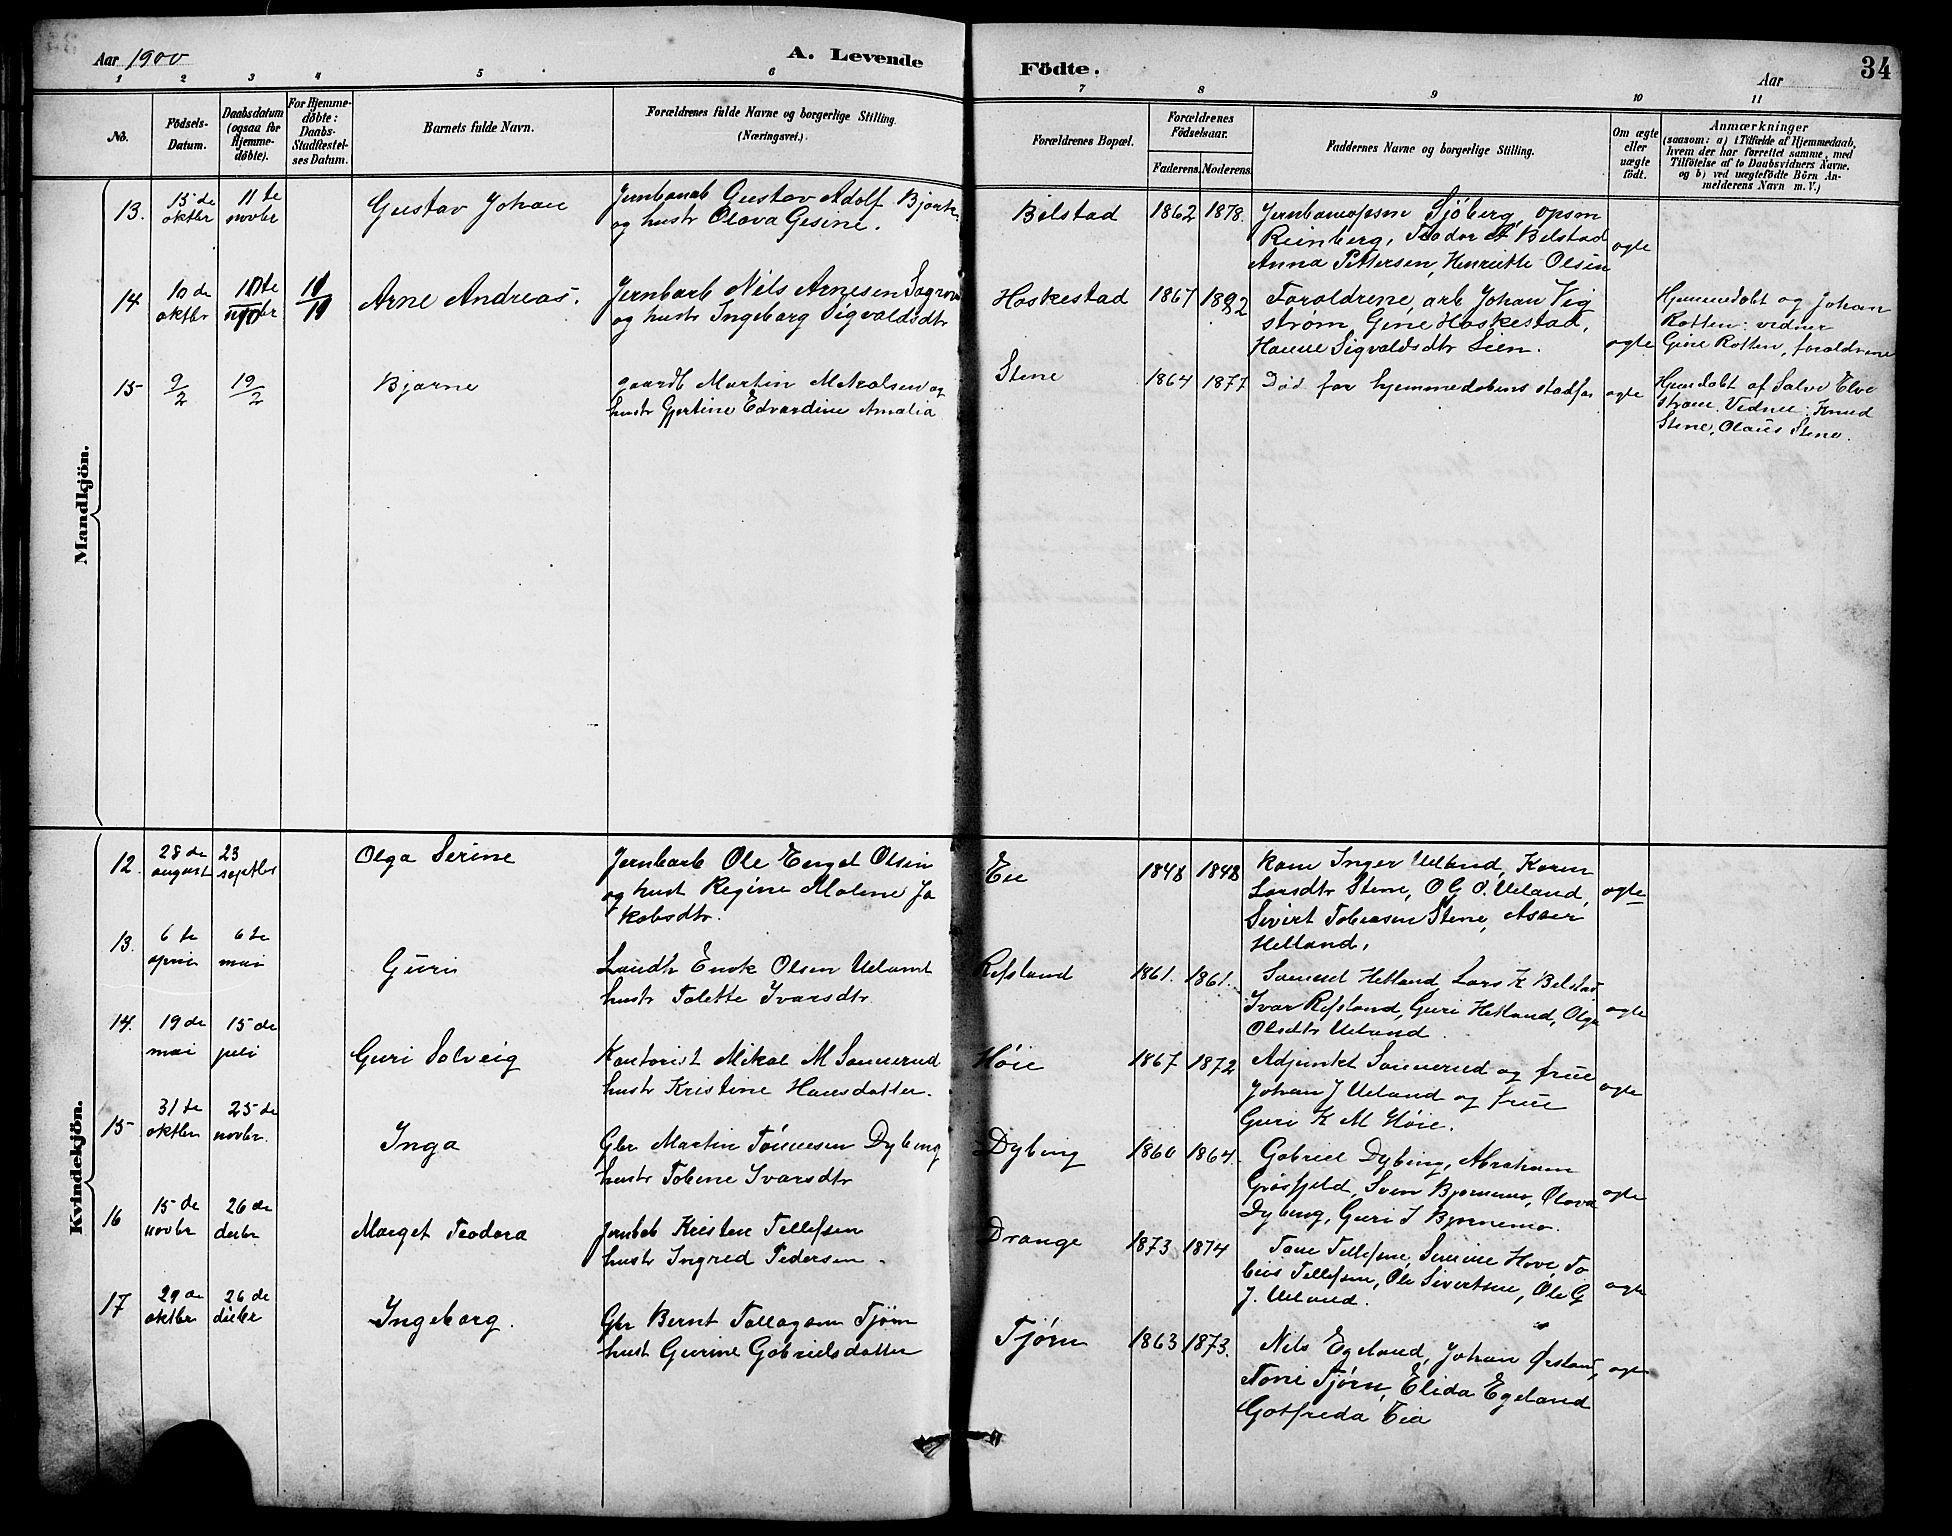 Aar 1900
A. Levende
Födte.
Aar
34
1 2 3 4 5 6 7 8 9 10 11
No.
Födsels-Datum.
Daabsdatum (ogsaa for Hjemme-døbte).
For Hjemme-døbte: Daabs-Stadfæstel-ses Datum.
Barnets fulde Navn.
Forældrenes fulde Navne og borgerlige Stilling.
(Næringsvei.)
Forældrenes Bopæl.
Forældrenes Födselsaar.
Faderens. Moderens.
Faddernes Navne og borgerlige Stilling.
Om ægte eller uægte födt.
Anmærkninger
(saasom: a) i Tilfælde af Hjemmedaab,
hvem der har forrettet samme, med
Tilföielse af to Daabsvidners Navne.
og b) ved uægtefödte Börn An-
melderens Navn m. V.)
Mandkjön.
13. 15 de oktbr 11 te novbr Gustav Johan
Jernbanearb Gustav Adolf Bjork
og hustr Olava Gesine.
Bilstad 1862 1878.
Jernbaneopsm Sjöberg, opsm
Reinberg, Teodor A Bilstad
Anna Pettersen, Henriette Olsen
ægte
14 10 de oktbr 10 te novbr Arne Andreas.
Jernbarb Nils Arnesen
og hustr Ingeborg Sigvaldsdtr
Haskestad 1867
Forældrene, arb Johan Vig
strøm, Gine Haskestad,
Hanne Sigvaldsdtr Lien.
ægte
Hjemmedøbt og Johan
Rotten: vidner
Gine Rotten, forældrene
15 9/2 19/2 Bjarne
gaardb Martin Mikalsen og
hustr Gjertine Edvardine Amalia
Stene 1864 1877
Død før hjemmedøbens stadfæs
ægte
Hjemdøbt af Salve Elve
strøm. Vidner: Knud
Stene, Olaus Stene.
Kvindekjön.
12. 28 de august 23 septbr Olga Serine
Jernbarb Ole Enget Olsen
og hust Regine Malene Ja
kobsdtr.
Eie 1848 1848
kone Inger Ueland, Karen
Larsdtr Stene, O G O. Ueland,
Sivert Tobiasen Stene, Asser
Helland.
ægte
13. 6 te april 6 te mai Guri
Landh Enok Olsen Ueland
hustr Tolette Ivarsdtr
Refsland 1861. 1861.
Samuel Hetland Lars K Bilstad
Ivar Refsland, Guri Hetland, Olga
Olsdtr Ueland.
ægte
14. 19 de mai 15 de juli Guri Solveig
Kontorist Mikal M Sannerud
hustr Kristine Hansdatter.
Höie 1867 1872
Adjunkt Sannerud og frue
Johan J Ueland og frue
Guri K M Höie.
ægte
15 31 te oktbr 25 de novbr. Inga
Gbr Martin Tönnesen Dybing
hustr Tobine Ivarsdtr
Dybing 1860 1864.
Gabriel Dybing, Abraham
Gråsfjeld, Sven Bjørnemo, Olava
Dybing, Guri S Bjørnemo.
ægte
16 15 de novbr 26 de decbr Marget Teodora
Jernbab Kristen Tellefsen
hustr Ingrid Pedersen.
Drange 1873 1874
Tone Tellefsen, Severine Hove To
bias Tellefsen, Ole Sivertsen, Ole G
J. Ueland.
ægte
17 29 de oktbr 26 de decbr Ingeborg.
Gbr Bernt Tollagsen Tjörn
hust Gurine Gabrielsdatter
Tjörn 1863 1873.
Nils Egeland, Johan Ørsland,
Torie Tjörn, Elida Egeland
Gotfreda Eia
ægte